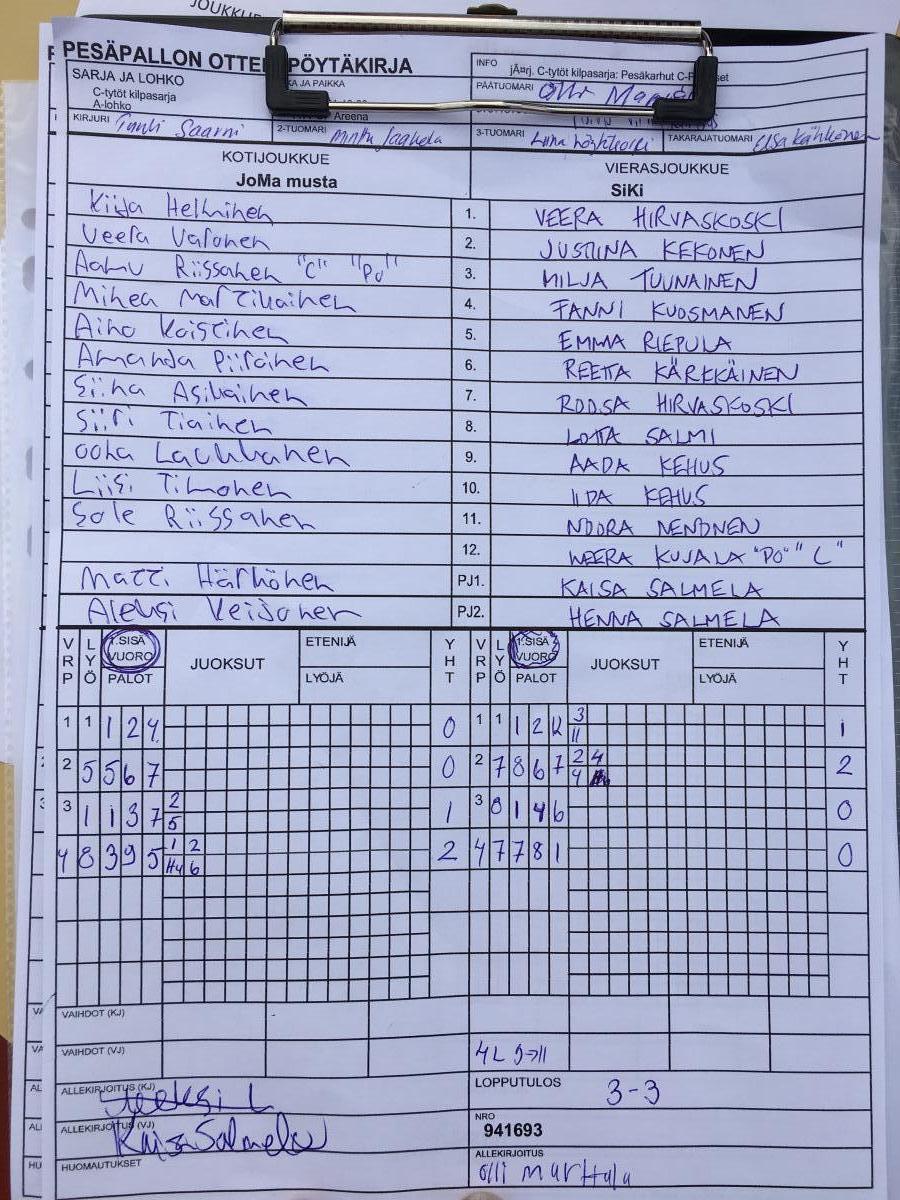 JOUKKUE
PESÄPALLON OTTE PÖYTÄKIRJA
SARJA JA LOHKO
C-tytöt kilpasarja
A-lohko
KA JA PAIKKA
Areena
INFO
jÃ¤rj. C-tytöt kilpasarja: Pesäkarhut C-
set
PÄÄTUOMARI Olli
KIRJURI Tauli Saarni
2-TUOMARI Minttu Jaakola
3-TUOMARI Liina
TAKARAJATUOMARI Elsa Kähkönen
KOTIJOUKKUE
JoMa musta
VIERASJOUKKUE
SiKi
Kiija Helminen 1. VEERA HIRVASKOSKI
Veera Varonen 2. JUSTIINA KEKONEN
Aamu Riissanen "C" "PJ" 3. MILJA TUUNAINEN
Minea Martikainen 4. FANNI KUOSMANEN
Aino Koistinen 5. EMMA RIEPULA
Amanda Piiroinen 6. REETTA KÄRKKÄINEN
Siina Asikainen 7. ROOSA HIRVASKOSKI
Siiri Tiainen 8. LOTTA SALMI
Oona Laukkanen 9. AADA KEHUS
Liisi Timonen 10. IIDA KEHUS
Sole Riissanen 11. NOORA NENONEN
12. WEERA KUJALA "PO" "C"
Matti Härkönen PJ1. KAISA SALMELA
Aleksi Keijonen PJ2. HENNA SALMELA
VRP LYÖ 1.SISÄ VUORO PALOT JUOKSUT ETENIJÄ LYÖJÄ YHT VRP LYÖ 1.SISÄ VUORO PALOT JUOKSUT ETENIJÄ LYÖJÄ YHT
1 1 1 2 4 0 1 1 1 2 12 3 1
11
2 5 5 6 7 0 2 7 8 6 7 2 4 2
4
3 1 1 3 7 2 1 3 8 1 4 6 0
5
4 8 3 9 5 1 2 2 4 7 7 8 1 0
H4 6
VAIHDOT (KJ)
VAIHDOT (VJ) 4L 9→11
ALLEKIRJOITUS (KJ)
LOPPUTULOS 3-3
ALLEKIRJOITUS (VJ) Kaisa Salmela
NRO
941693
HUOMAUTUKSET
ALLEKIRJOITUS
Olli Marttala